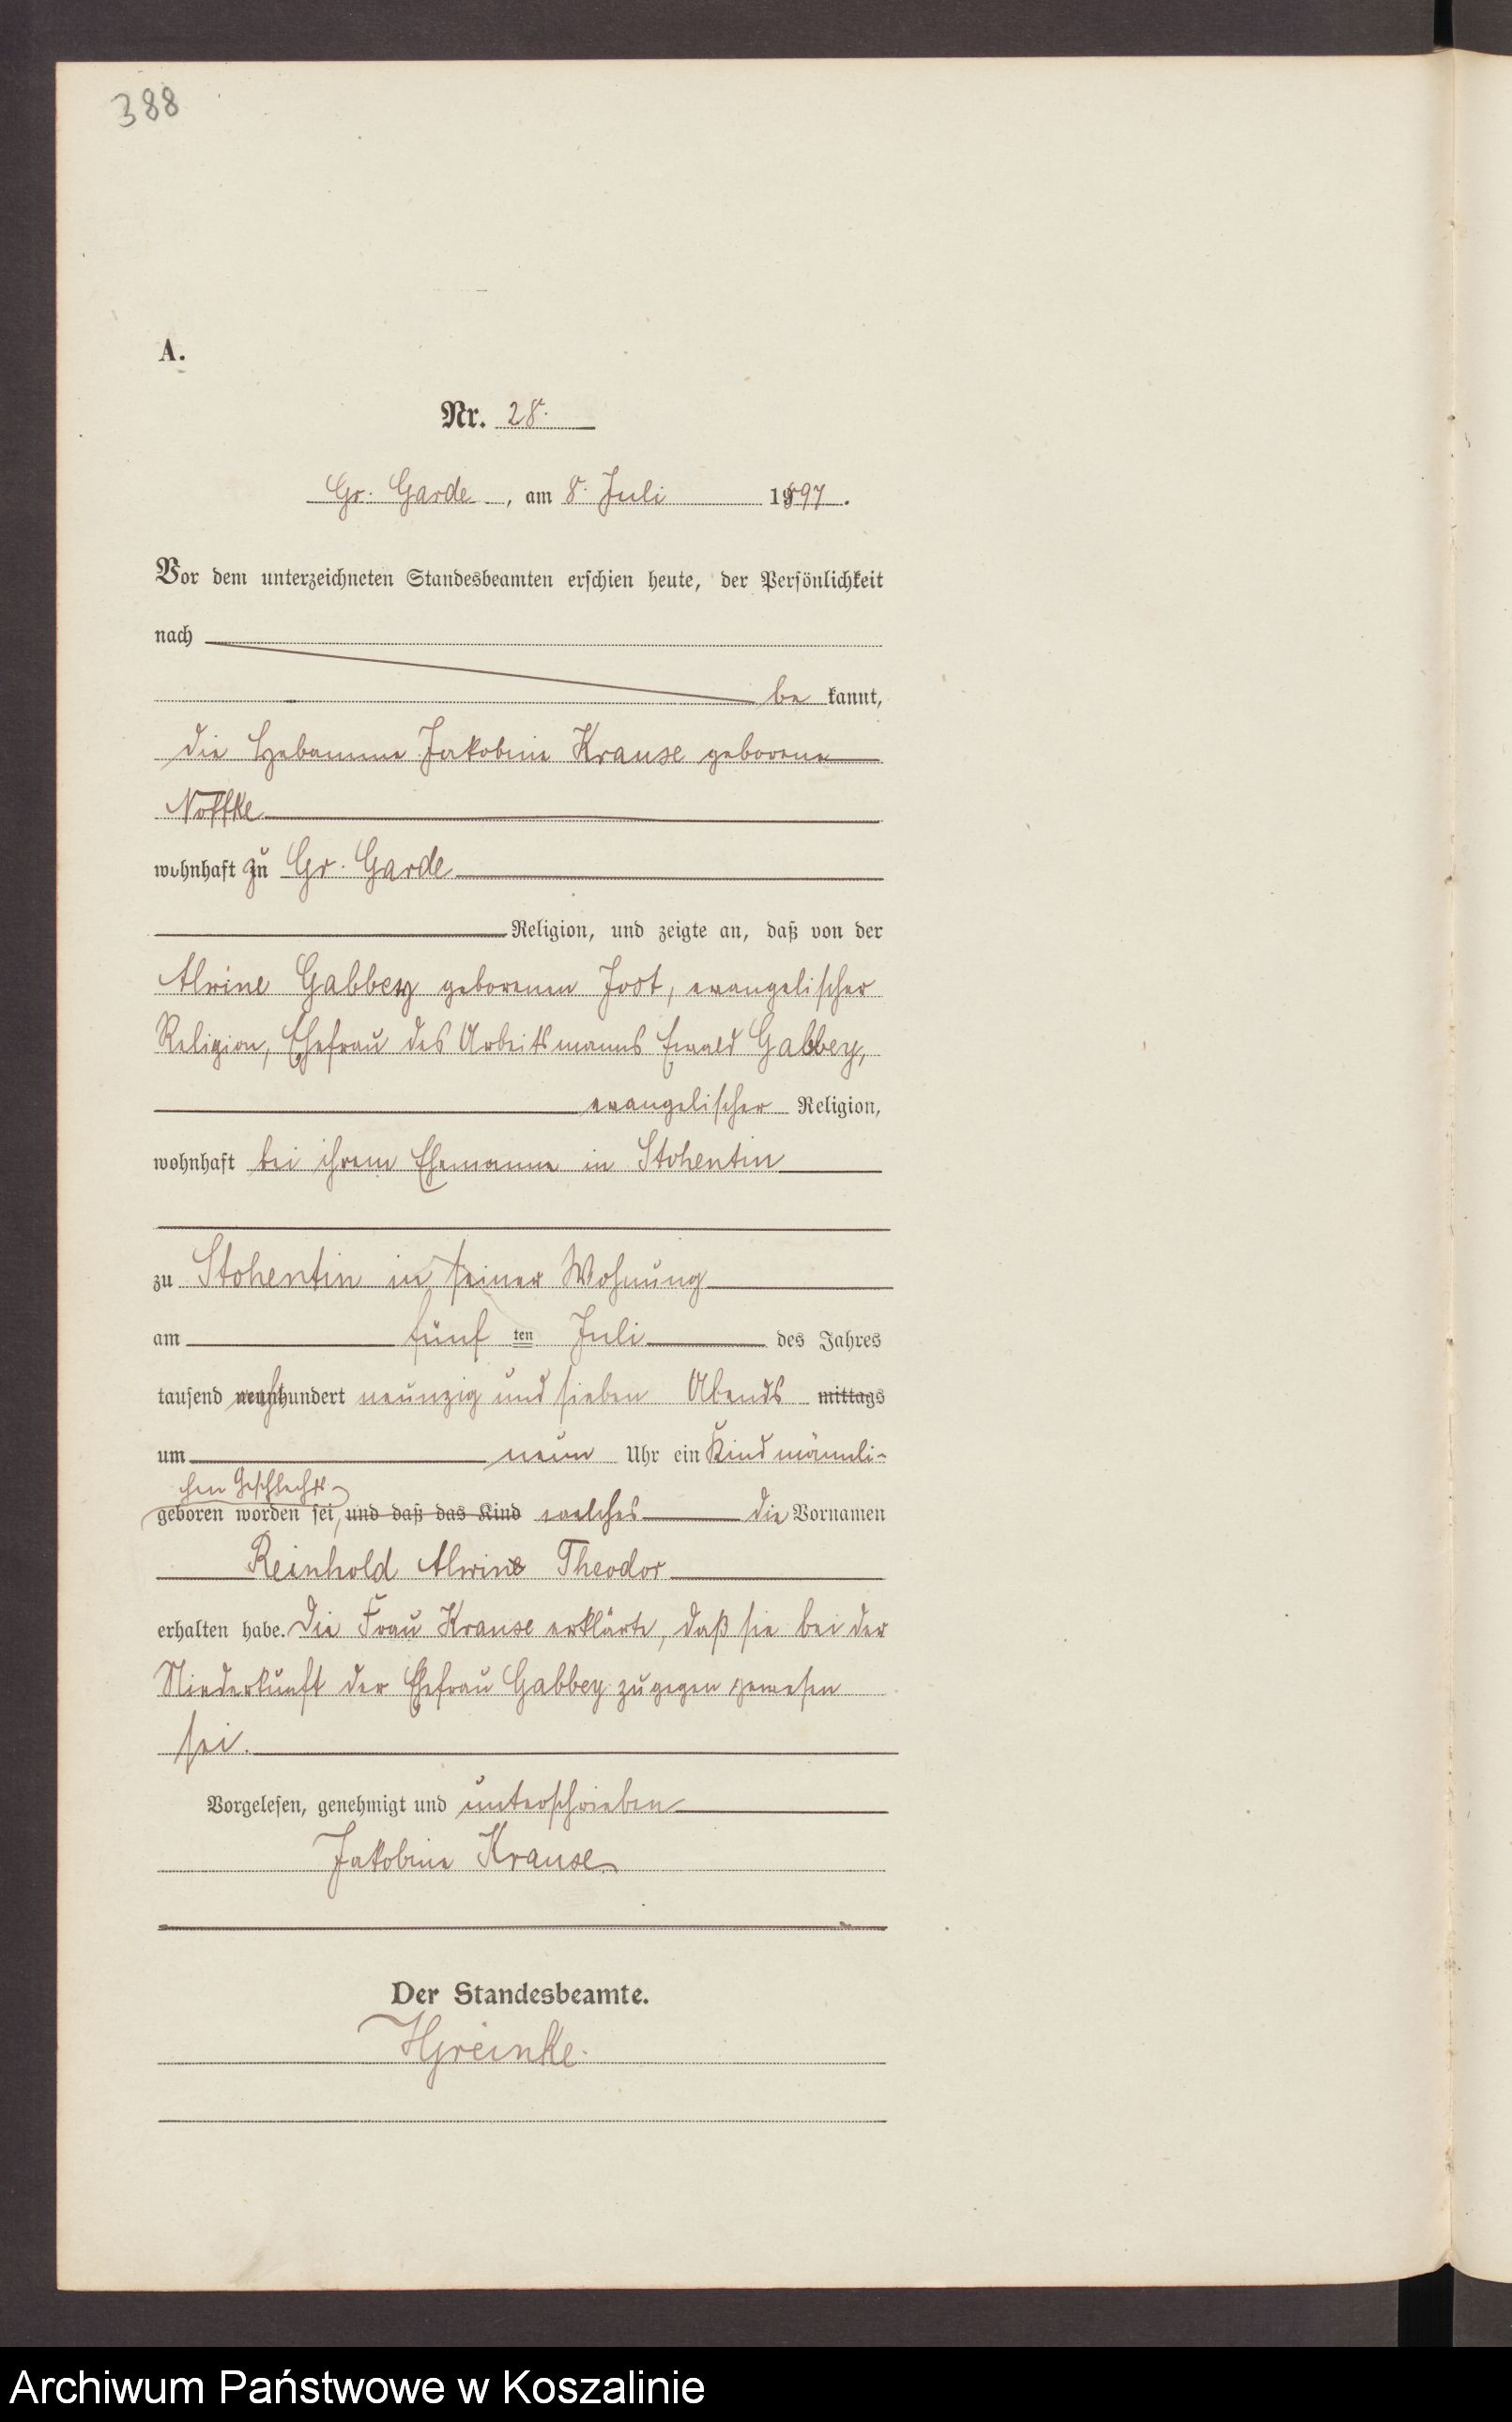 388
A.
Nr. 28.
Gr. Garde, am 8. Juli 1897.
Vor dem unterzeichneten Standesbeamten erschien heute, der Persönlichkeit
nach
be kannt,
die Hebamme Jakobine Krause geborene
Noffke
wohnhaft zu Gr. Garde
Religion, und zeigte an, daß von der
Alwine Gabbey geborenen Joost, evangelischer
Religion, Ehefrau des Arbeitsmanns Ewald Gabbey,
evangelischer Religion,
wohnhaft bei ihrem Ehemanne in Stohentin
zu Stohentin in seiner Wohnung
am fünf ten Juli des Jahres
tausend neunhundert neunzig und sieben Abends mittags
um neun Uhr ein Kind männli-
chen Geschlechts
geboren worden sei, und daß das Kind welches die Vornamen
Reinhold Alwin Theodor
erhalten habe. Die Frau Krause erklärte, daß sie bei der
Niederkunft der Ehefrau Gabbey zugegen gewesen
sei.
Vorgelesen, genehmigt und unterschrieben
Jakobine Krause
Der Standesbeamte.
HGreinke.
Archiwum Państwowe w Koszalinie